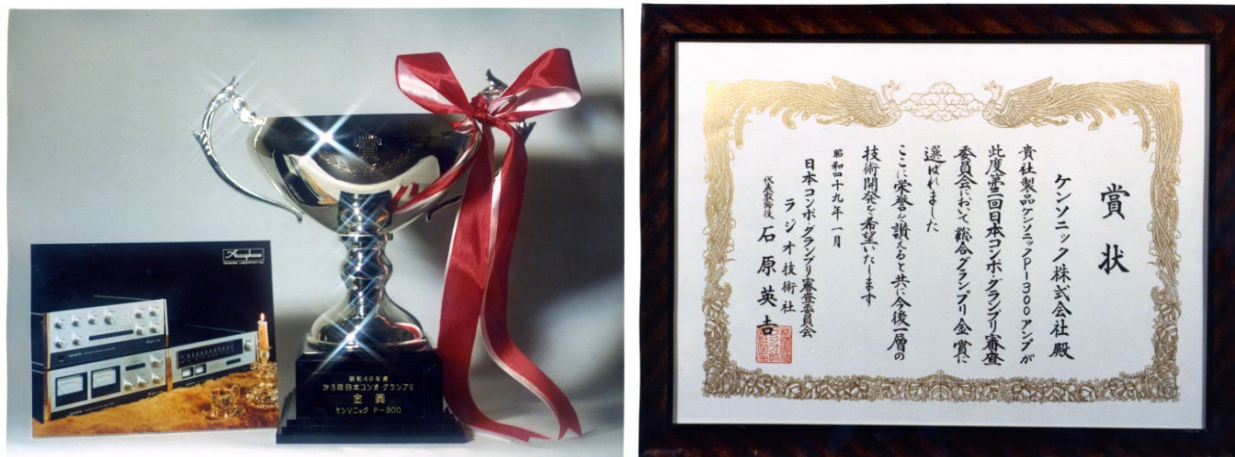 Accuphase
昭和49年度
オ3回日本コンポ・グランプリ
金賞
ケンソニック P-300
賞状
ケンソニック株式会社殿
貴社製品ケンソニックP-300アンプが
此度第三回日本コンポ・グランプリ審査
委員会において総合グランプリ金賞に
選ばれました
ここに栄誉を讃えると共に今後一層の
技術開発を希望いたします
昭和四十九年一月
日本コンポ・グランプリ審査委員会
ラジオ技術社
代表取締役 石原英吉